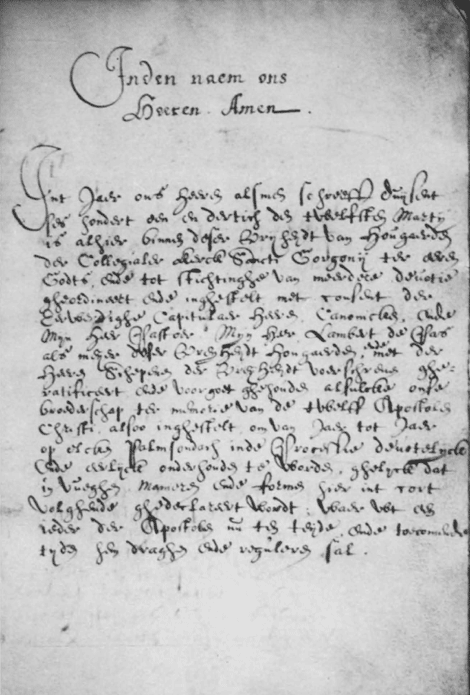 Inden naem ons
Heeren. Amen.
Int Jaer ons heeren alsmen schreeff duijsent
ses hondert een en dertich den tweelfsten Martij
is alhier binnen deser Vrijheijdt van Hougaerden
der Collegialer kerck Sancti Gorgonij ter eeren
Godts, ende tot stichtinghe van meerdere devotie
gheordineert ende inghestelt met consent der
Eerwerdighe Capitulaer Heeren Canonicken, ende
Mijn Heer Pastoer Mijn Heer Lambert de
als meijer deser Vreyheydt Hougaerden, met der
Heeren Schepenen der Vreyheydt voerschreven ghe-
ratificeert ende voorgoet ghehouden alsulcke onse
broederschap ter memorie van de twelff Apostolen
Christi, alsoo inghestelt om van Jaer tot Jaer
op elcken Palmsondach inde Processie devotelyck
ende eerlyck onderhouden te worden, ghelyck dat
in vueghen Manieren ende formen hier int cort
volghende ghedeclareert wordt: waer wt een
ieder der Apostolen nu ter tyde, ende toecomende
tyden hen draghen ende reguleren sal.